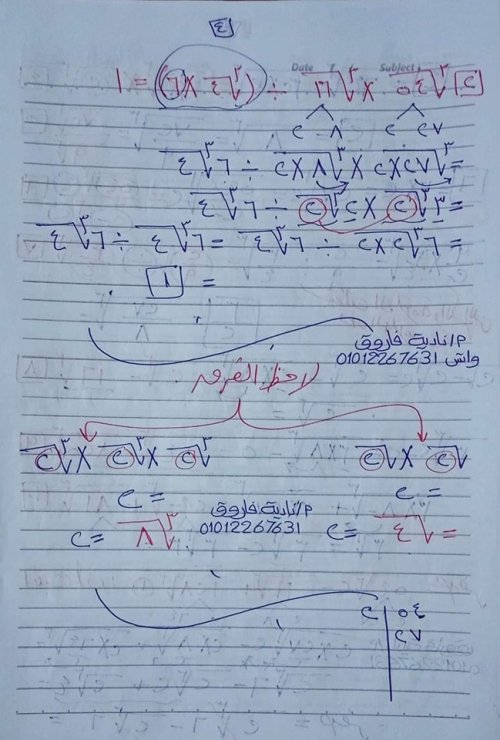 ٤
Date / Subject
٢ ∛٥٤ × ∛١٦ ÷ (∛٤ × ٦) = ١
٢٧ ٢ ٨ ٢
= ∛٢٧×٢ × ∛٨×٢ ÷ ٦∛٤
= ٣∛٢ × ٢∛٢ ÷ ٦∛٤
= ٦∛٢×٢ ÷ ٦∛٤ = ٦∛٤ ÷ ٦∛٤
= ١
م/نادية فاروق
واتس 01012267631
لاحظ الفرق
√٢ × √٢
= ٢
= √٤ = ٢
∛٢ × ∛٢ × ∛٢
= ٢
∛٨ = ٢
م/نادية فاروق
01012267631
٥٤ ٢
٢٧